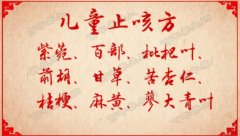 儿童止咳方
紫菀、百部、枇杷叶、
前胡、甘草、苦杏仁、
桔梗、麻黄、蓼大青叶